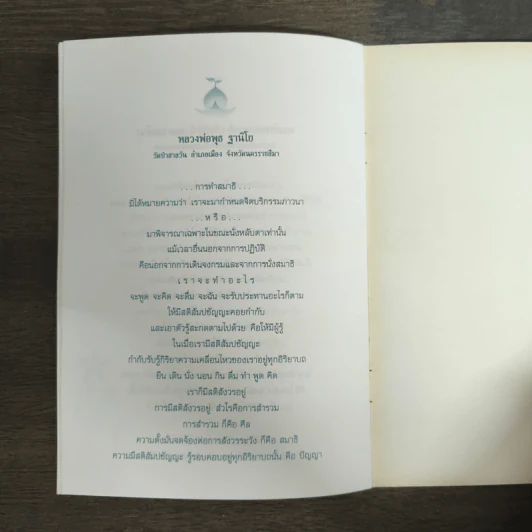 หลวงพ่อพุธ ฐานิโย
วัดป่าสาลวัน อำเภอเมือง จังหวัดนครราชสีมา
...การทำสมาธิ...
มิได้หมายความว่า เราจะมากำหนดจิตบริกรรมภาวนา
...ห รื อ...
มาพิจารณาเฉพาะในขณะนั่งหลับตาเท่านั้น
แม้เวลาอื่นนอกจากการปฏิบัติ
คือนอกจากการเดินจงกรมและจากการนั่งสมาธิ
เ ร า จ ะ ทำ อ ะ ไ ร
จะพูด จะคิด จะดื่ม จะฉัน จะรับประทานอะไรก็ตาม
ให้มีสติสัมปชัญญะคอยกำกับ
และเอาตัวรู้สะกดตามไปด้วย คือให้มีผู้รู้
ในเมื่อเรามีสติสัมปชัญญะ
กำกับรับรู้กิริยาความเคลื่อนไหวของเราอยู่ทุกอิริยาบถ
ยืน เดิน นั่ง นอน กิน ดื่ม ทำ พูด คิด
เราก็มีสติสังวรอยู่
การมีสติสังวรอยู่ สังวรคือการสำรวม
การสำรวม ก็คือ ศีล
ความตั้งมั่นจดจ้องต่อการสังวรระวัง ก็คือ สมาธิ
ความมีสติสัมปชัญญะ รู้รอบคอบอยู่ทุกอิริยาบถนั้น คือ ปัญญา